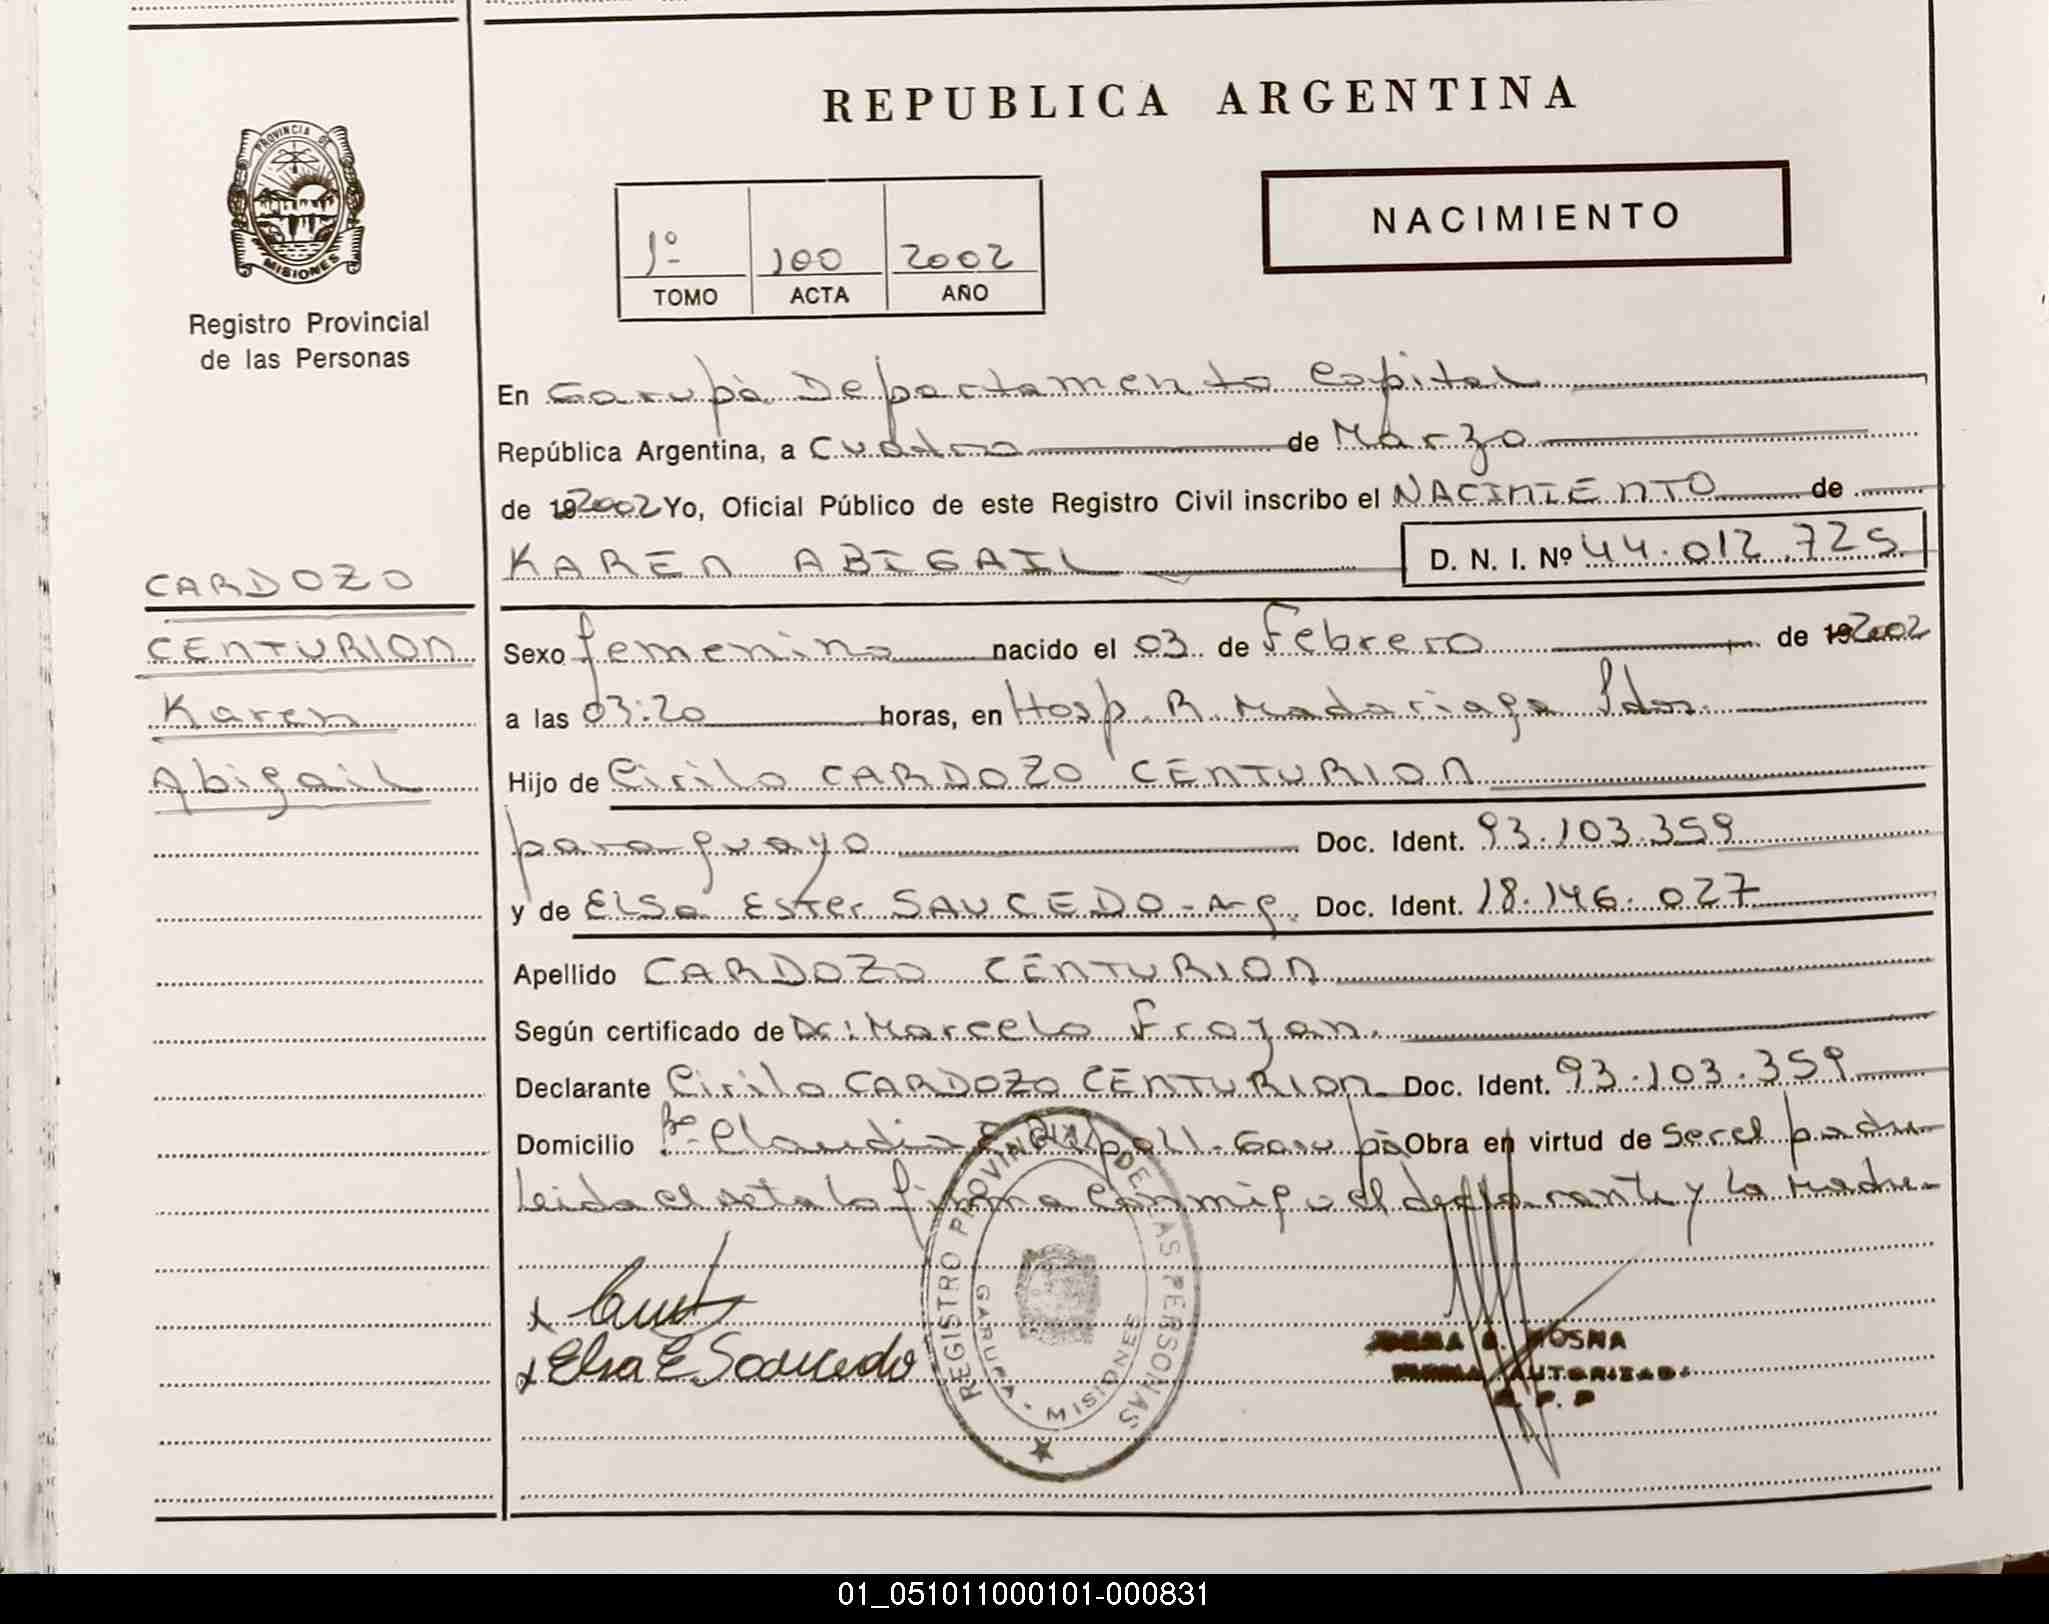 REPUBLICA ARGENTINA
PROVINCIA DE
MISIONES
Registro Provincial
de las Personas
1º 100 2002
TOMO ACTA AÑO
NACIMIENTO
En Garupá Departamento Capital
República Argentina, a Cuatro de Marzo
de 192002 Yo, Oficial Público de este Registro Civil inscribo el NACIMIENTO de
KAREN ABIGAIL D. N. I. Nº 44.012.725
CARDOZO
CENTURION
Karen
Abigail
Sexo femenino nacido el 03 de Febrero de 192002
a las 03:20 horas, en Hosp. R. Madariaga Pdas.
Hijo de Cirilo CARDOZO CENTURION
paraguayo Doc. Ident. 93.103.359
y de Elsa Ester SAUCEDO - Arg. Doc. Ident. 18.146.027
Apellido CARDOZO CENTURION
Según certificado de Dr: Marcelo Froján.
Declarante Cirilo CARDOZO CENTURION Doc. Ident. 93.103.359
Domicilio Bº Claudia - Garupá Obra en virtud de ser el padre
Leida el acta la firma conmigo el declarante y la madre
x
x Elsa E Saucedo
REGISTRO PROVINCIAL DE LAS PERSONAS
GARUPA - MISIONES
MOSNA
FIRMA AUTORIZADA
R. P. P
01_051011000101-000831